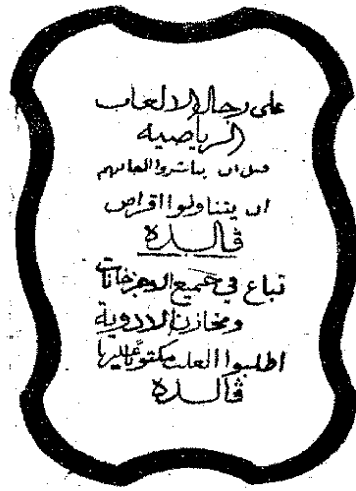 على رجال الالعاب
الرياضية
قبل ان يباشروا العابهم
ان يتناولوا اقراص
ڤالسدة
تباع في جميع الاجزخانات
ومخازن الادوية
اطلبوا العلب مكتوبا عليها
ڤالسدة